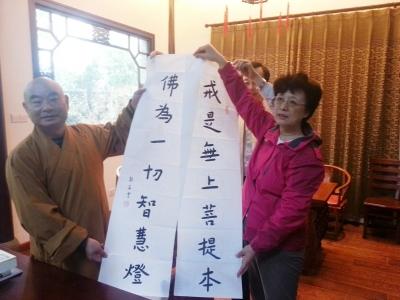 戒是無上菩提本
佛為一切智慧燈